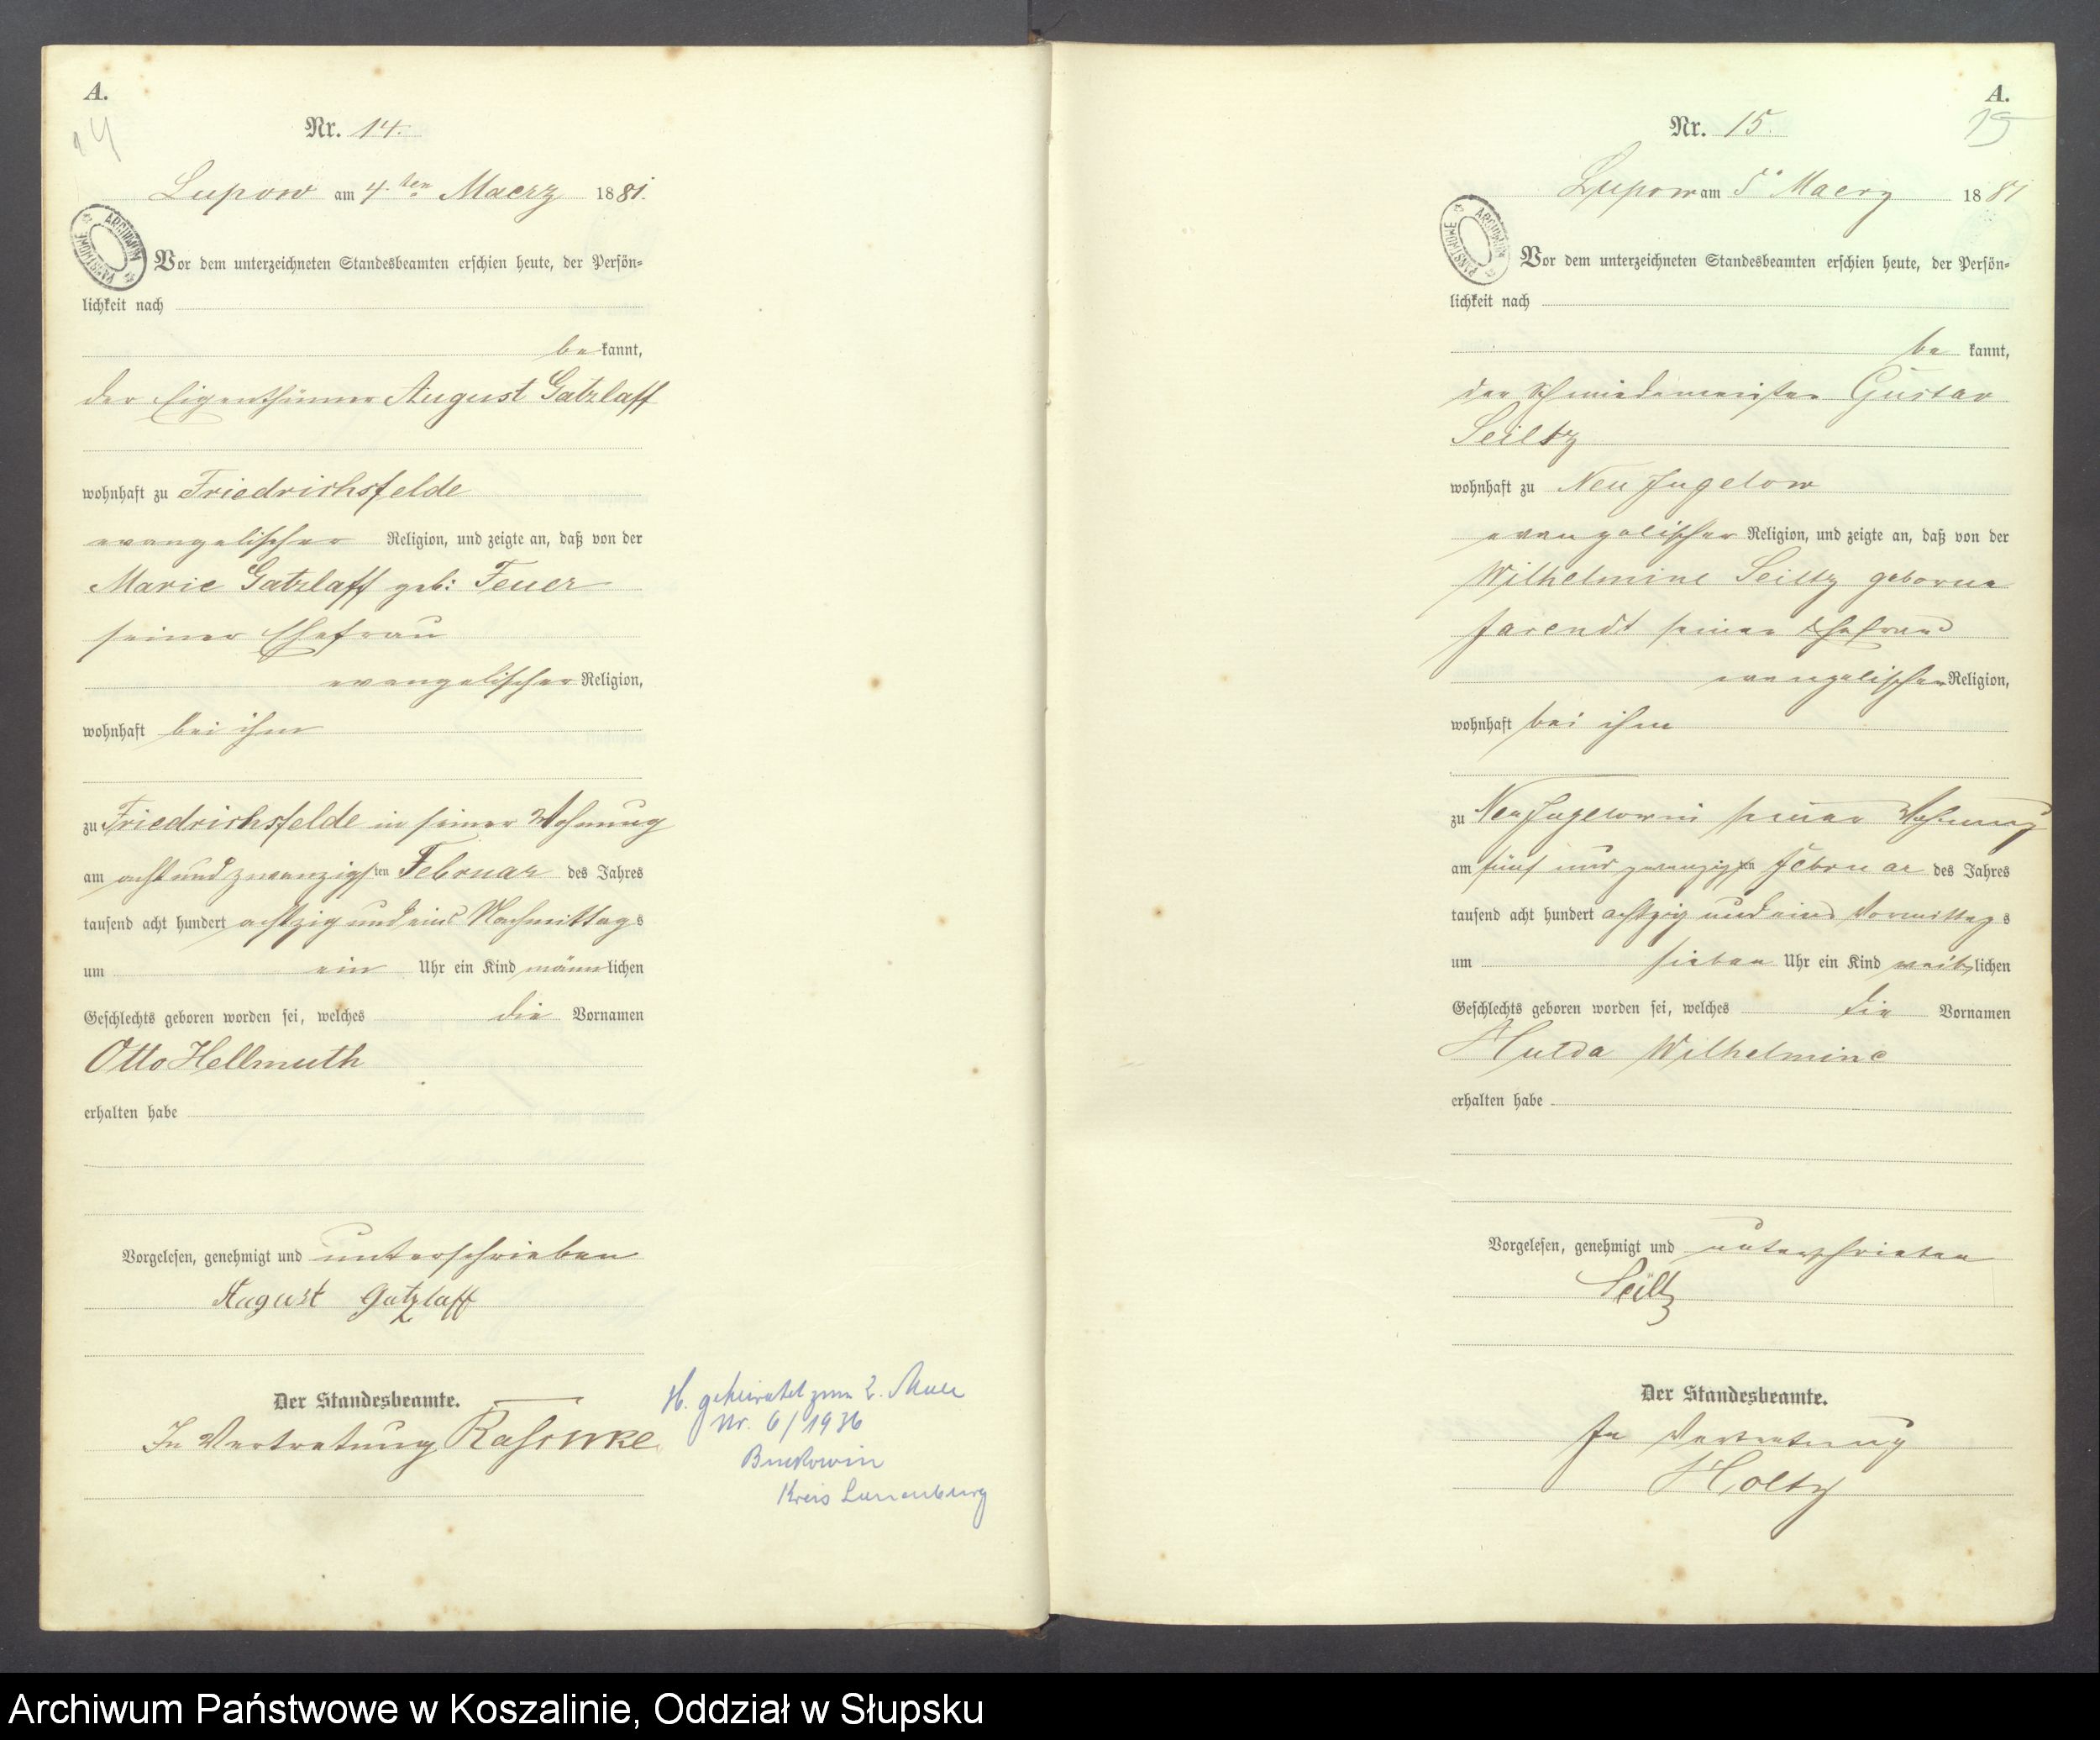 A.
14
Nr. 14.
Lupow am 4.ten Maerz 1881.
ARCHIWUM PAŃSTWOWE
Vor dem unterzeichneten Standesbeamten erschien heute, der Persön-
lichkeit nach
be kannt,
der Eigenthümer August Gatzlaff
wohnhaft zu Friedrichsfelde
evangelischer Religion, und zeigte an, daß von der
Marie Gatzlaff geb: Feuer
seiner Ehefrau
evangelischer Religion,
wohnhaft bei ihm
zu Friedrichsfelde in seiner Wohnung
am acht und zwanzigsten Februar des Jahres
tausend acht hundert achtzig und eins Nachmittags
um ein Uhr ein Kind männlichen
Geschlechts geboren worden sei, welches die Vornamen
Otto Hellmuth
erhalten habe
Vorgelesen, genehmigt und unterschrieben
August Gatzlaff
Der Standesbeamte.
In Vertretung
H. geheiratet zum 2. Male
Nr. 6/1936
Buckowin
Kreis Lauenburg
A.
15
Nr. 15.
Lupow am 5 Maerz 1881
ARCHIWUM PAŃSTWOWE
Vor dem unterzeichneten Standesbeamten erschien heute, der Persön-
lichkeit nach
be kannt,
der Schmiedemeister Gustav
Seiltz
wohnhaft zu Neu Jugelow
evangelischer Religion, und zeigte an, daß von der
Wilhelmine Seiltz geborne
Jarendt seiner Ehefrau
evangelischer Religion,
wohnhaft bei ihm
zu Neu Jugelow in seiner Wohnung
am fünf und zwanzigsten Februar des Jahres
tausend acht hundert achtzig und eins Vormittags
um sieben Uhr ein Kind weiblichen
Geschlechts geboren worden sei, welches die Vornamen
Hulda Wilhelmine
erhalten habe
Vorgelesen, genehmigt und unterschrieben
Seiltz
Der Standesbeamte.
In Vertretung
Holtz
Archiwum Państwowe w Koszalinie, Oddział w Słupsku